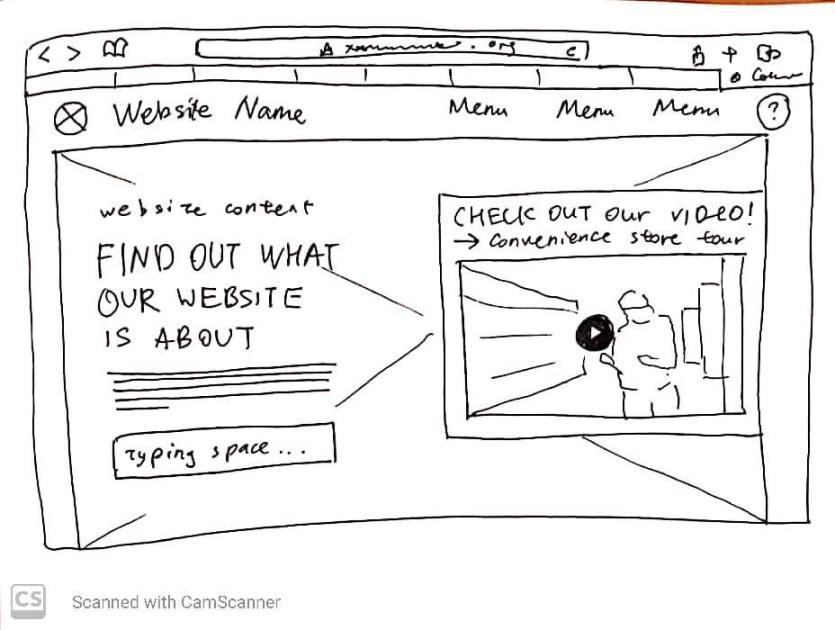 .org
Website Name
Menu Menu Menu
?
website content
FIND OUT WHAT
OUR WEBSITE
IS ABOUT
Typing space...
CHECK OUT OUR VIDEO!
→ convenience store tour
CS Scanned with CamScanner